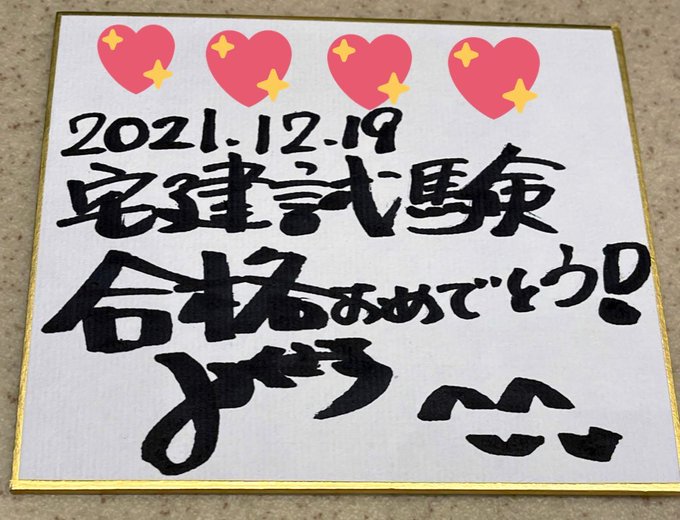 2021.12.19
宅建試験
合格おめでとう!